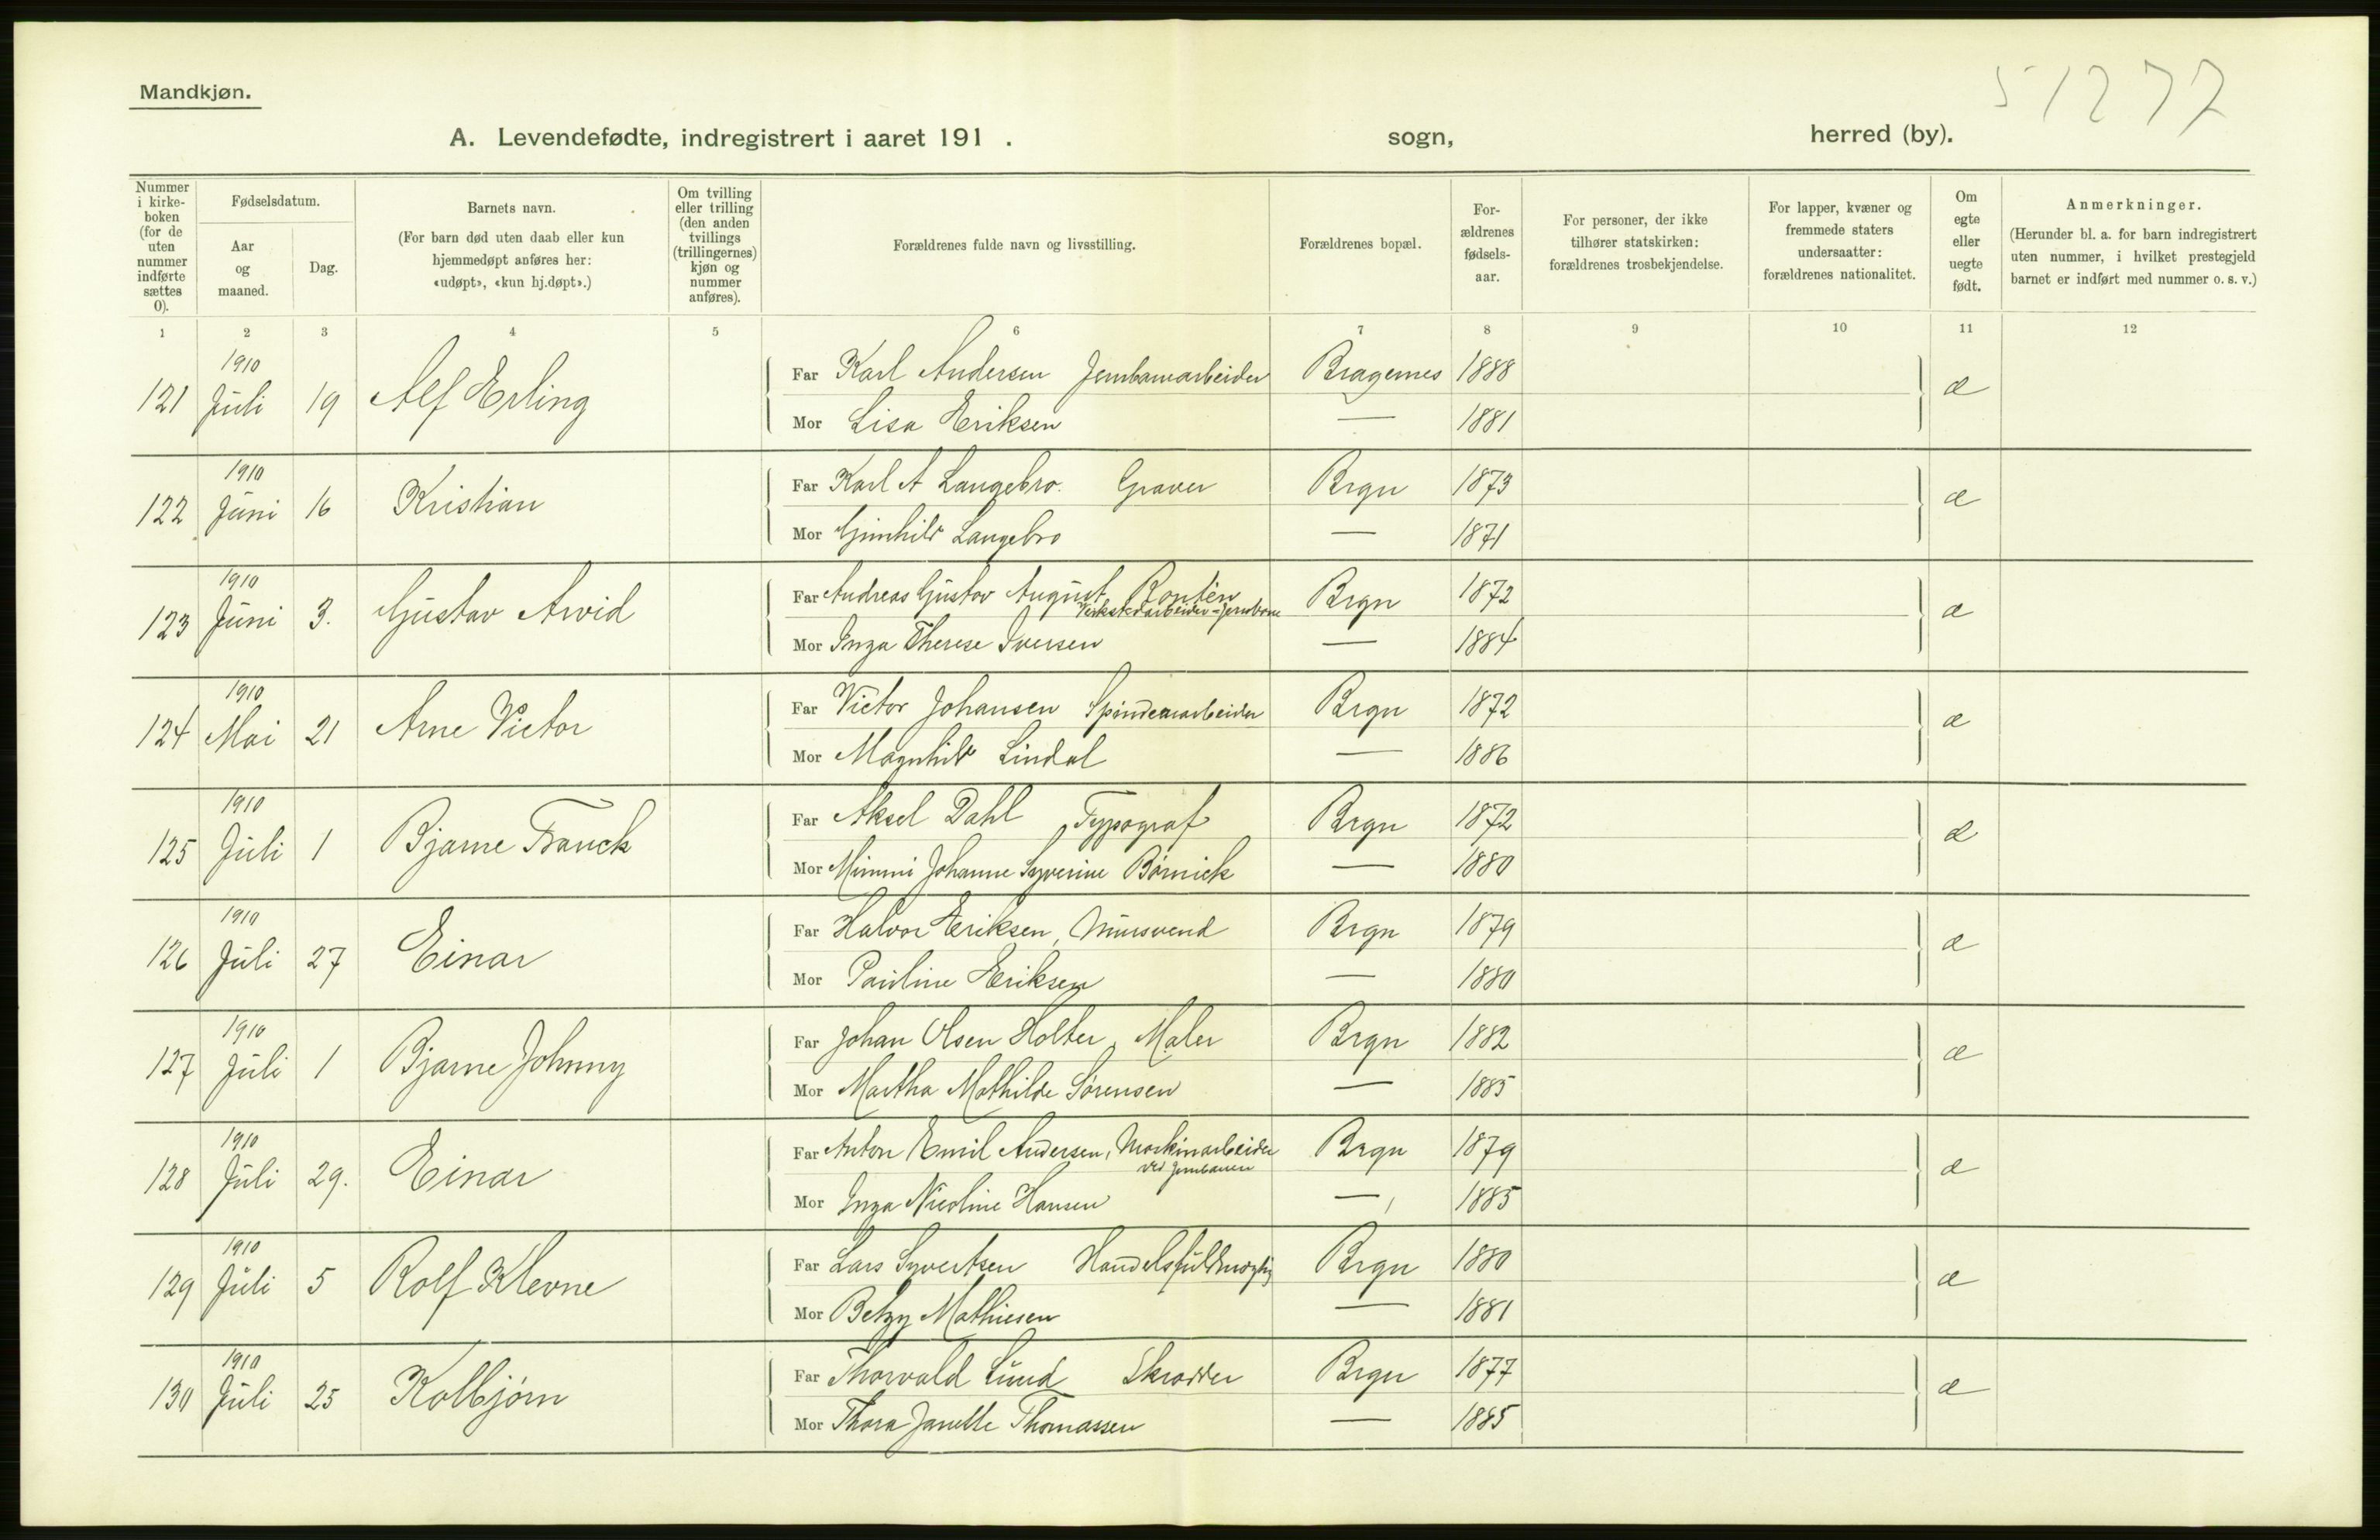 Mandkjøn.
51277
A. Levendefødte, indregistrert i aaret 191 . sogn, herred (by).
Nummer i kirke-boken (for de uten nummer indførte sættes 0).
Fødselsdatum.
Aar og maaned.
Dag.
Barnets navn.
(For barn død uten daab eller kun hjemmedøpt anføres her: «udøpt», «kun hj.døpt».)
Om tvilling eller trilling (den anden tvillings (trillingernes) kjøn og nummer anføres).
Forældrenes fulde navn og livsstilling.
Forældrenes bopæl.
For-ældrenes fødsels-aar.
For personer, der ikke tilhører statskirken: forældrenes trosbekjendelse.
For lapper, kvæner og fremmede staters undersaatter: forældrenes nationalitet.
Om egte eller uegte født.
Anmerkninger.
(Herunder bl. a. for barn indregistrert uten nummer, i hvilket prestegjeld barnet er indført med nummer o. s. v.)
1 2 3 4 5 6 7 8 9 10 11 12
121 1910 Juli 19 Alf Erling Far Karl Andersen Jernbanearbeider Bragernes 1888 æ
Mor Lisa Eriksen — 1881
122 1910 Juni 16 Kristian Far Karl A Langebro. Graver Brgn 1873 æ
Mor Gunhild Langebro — 1871
123 1910 Juni 3. Gustav Arvid Far Andreas Gustav August Rontén Verkstedarbeider - Jernbane Brgn 1872 æ
Mor Inga Therese Iversen — 1884
124 1910 Mai 21 Arne Victor Far Victor Johansen Spinderarbeider Brgn 1872 æ
Mor Magnhild Lindal — 1886
125 1910 Juli 1 Bjarne Franck Far Aksel Dahl, Typograf Brgn 1872 æ
Mor Mimmi Johanne Syverine Børnick — 1880
126 1910 Juli 27 Einar Far Halvor Eriksen, Mursvend Brgn 1879 æ
Mor Pauline Eriksen — 1880
127 1910 Juli 1 Bjarne Johnny Far Johan Olsen Holter, Maler Brgn 1882 æ
Mor Martha Mathilde Sørensen — 1885
128 1910 Juli 29. Einar Far Anton Emil Andersen, Maskinarbeider ved Jernbanen Brgn 1879 æ
Mor Inga Nicoline Hansen — 1885
129 1910 Juli 5 Rolf Klevne Far Lars Syvertsen Handelsfuldmægtig Brgn 1880 æ
Mor Betzy Mathiesen — 1881
130 1910 Juli 25 Kolbjørn Far Thorvald Lund Skrædder Brgn 1877 æ
Mor Thora Janette Thomassen — 1885